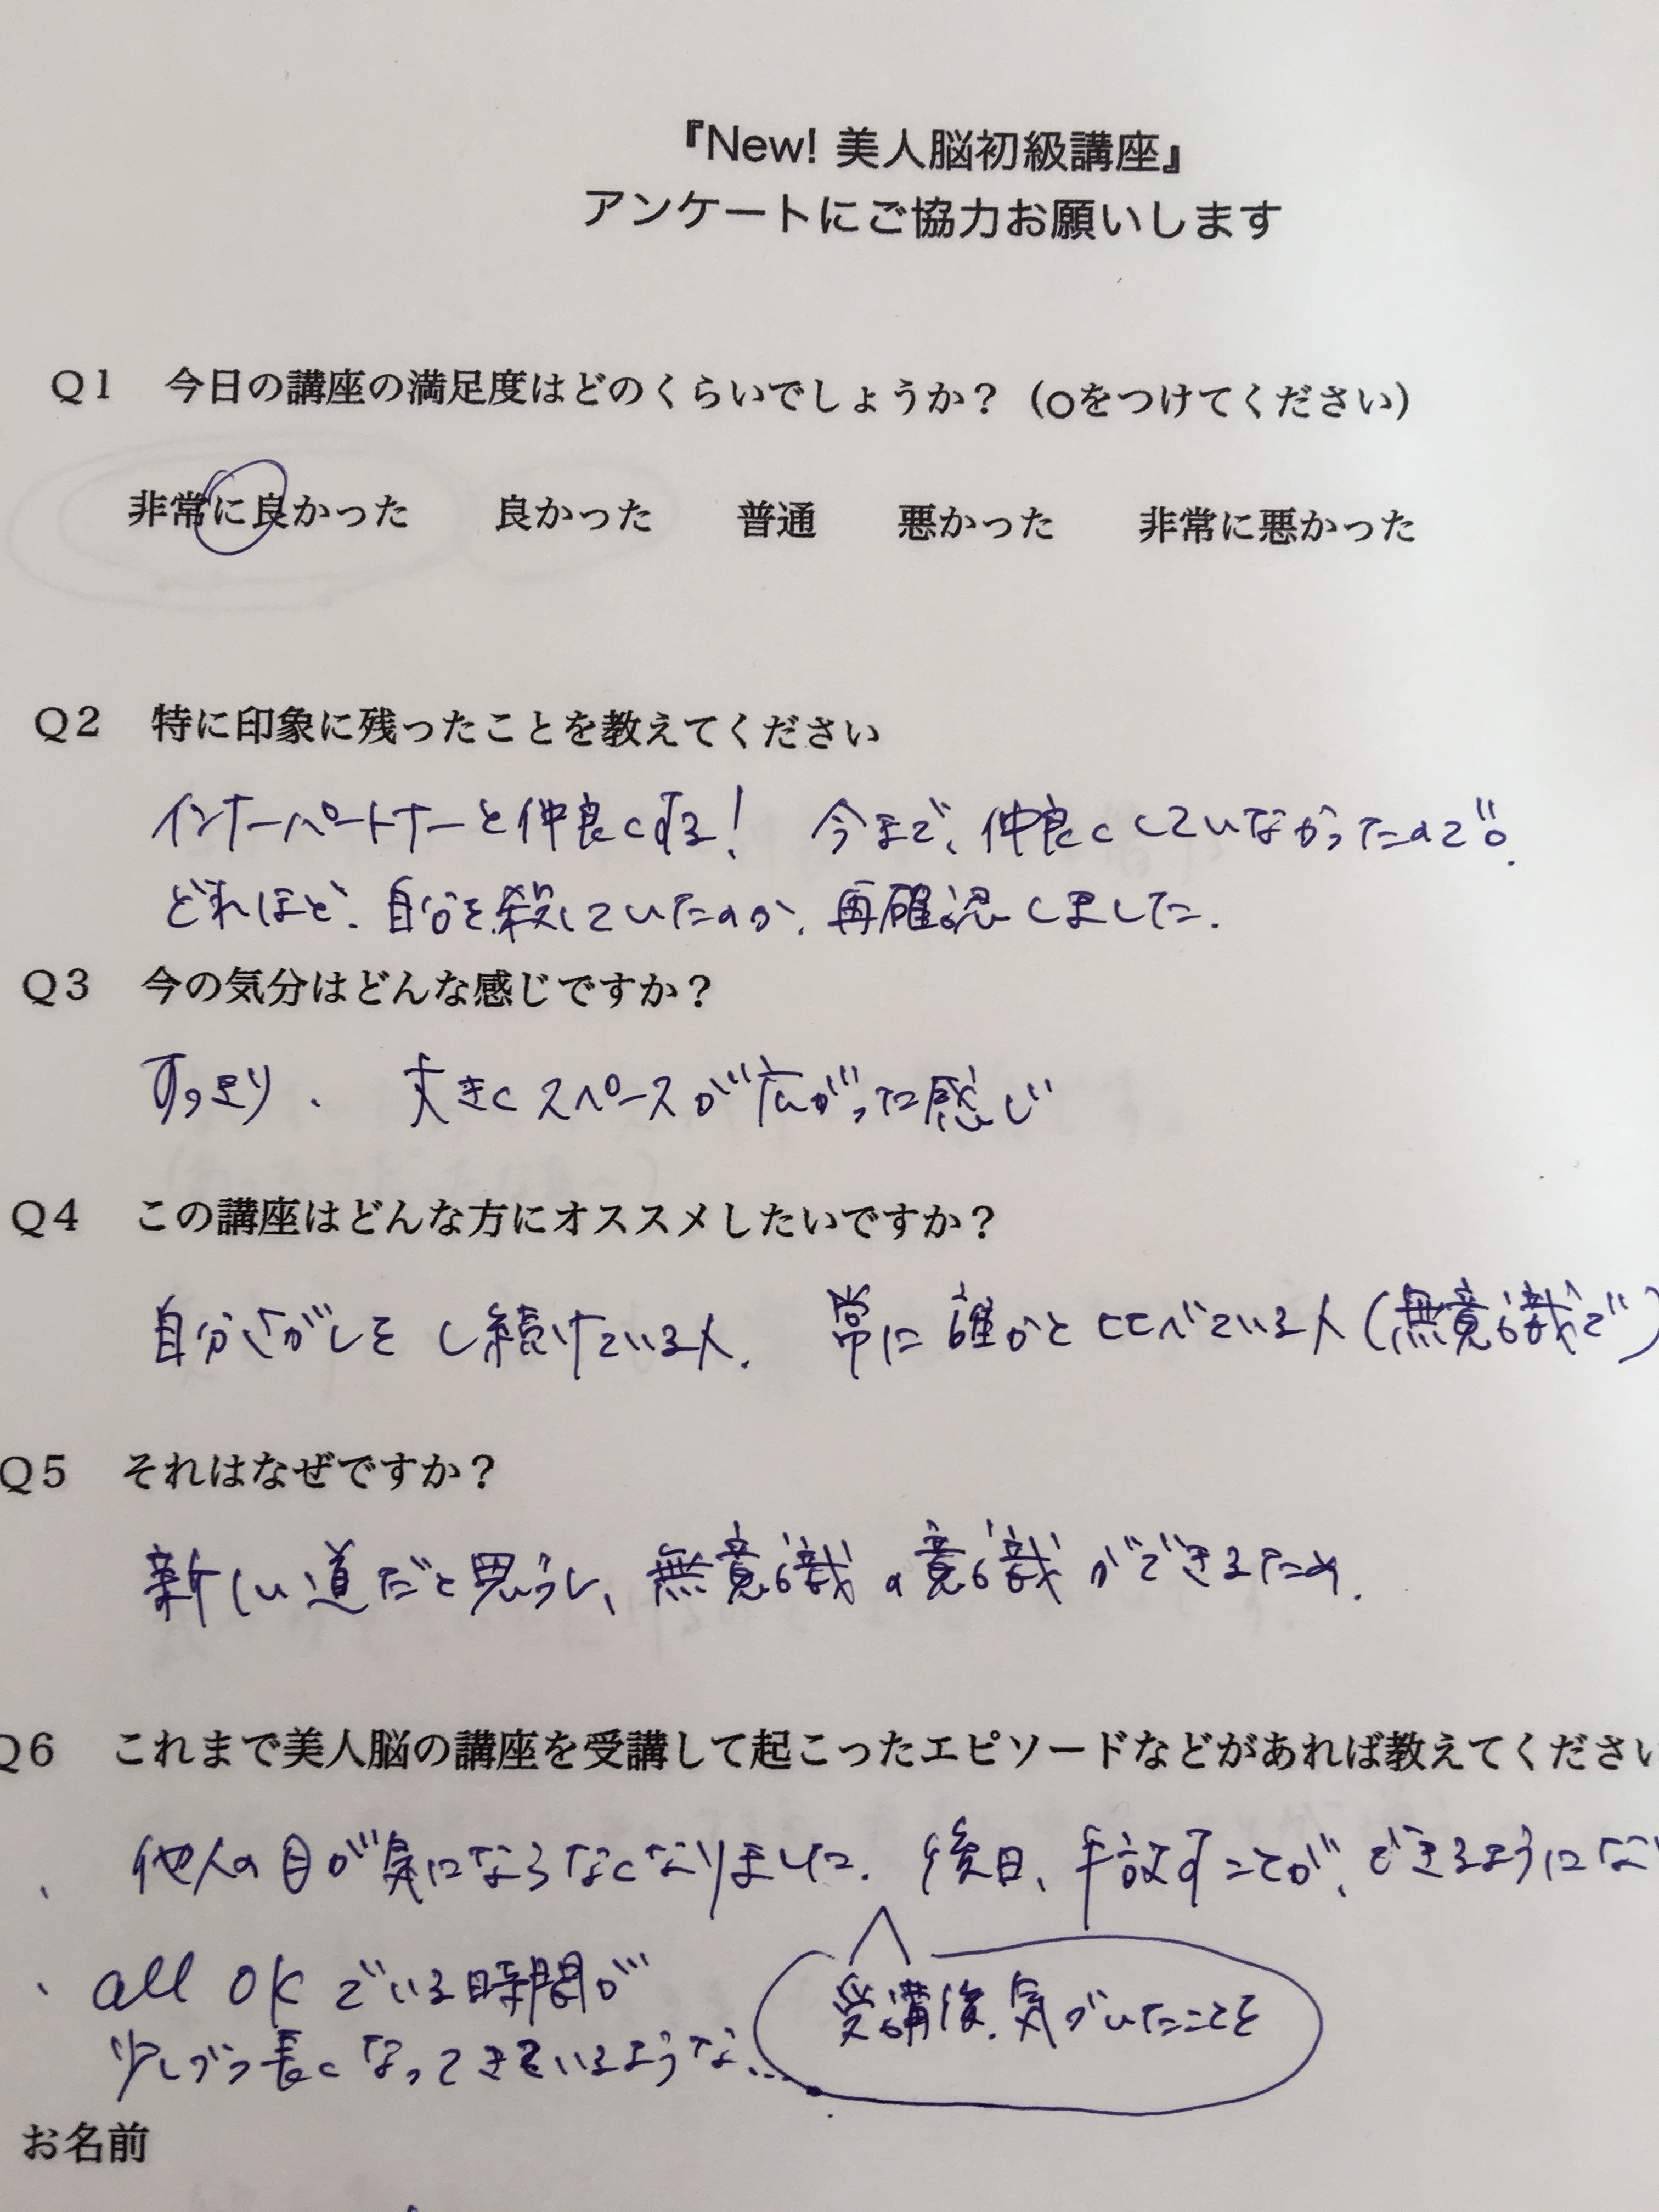 『New! 美人脳初級講座』
アンケートにご協力お願いします
Q1 今日の講座の満足度はどのくらいでしょうか？（○をつけてください）
非常に良かった 良かった 普通 悪かった 非常に悪かった
Q2 特に印象に残ったことを教えてください
インナーパートナーと仲良くする！ 今まで、仲良くしていなかったので。
どれほど、自分を殺していたのか、再確認しました.
Q3 今の気分はどんな感じですか？
すっきり、 大きくスペースが広がった感じ
Q4 この講座はどんな方にオススメしたいですか？
自分さがしをし続けている人. 常に誰かとくらべている人(無意識で)
Q5 それはなぜですか？
新しい道だと思うし、無意識の意識ができるため.
Q6 これまで美人脳の講座を受講して起こったエピソードなどがあれば教えてください
、他人の目が気にならなくなりました. 後日、手放すことが、できるようにな
、all OKでいる時間が
受講後、気づいたことを
少しづつ長くなってきているような...
お名前